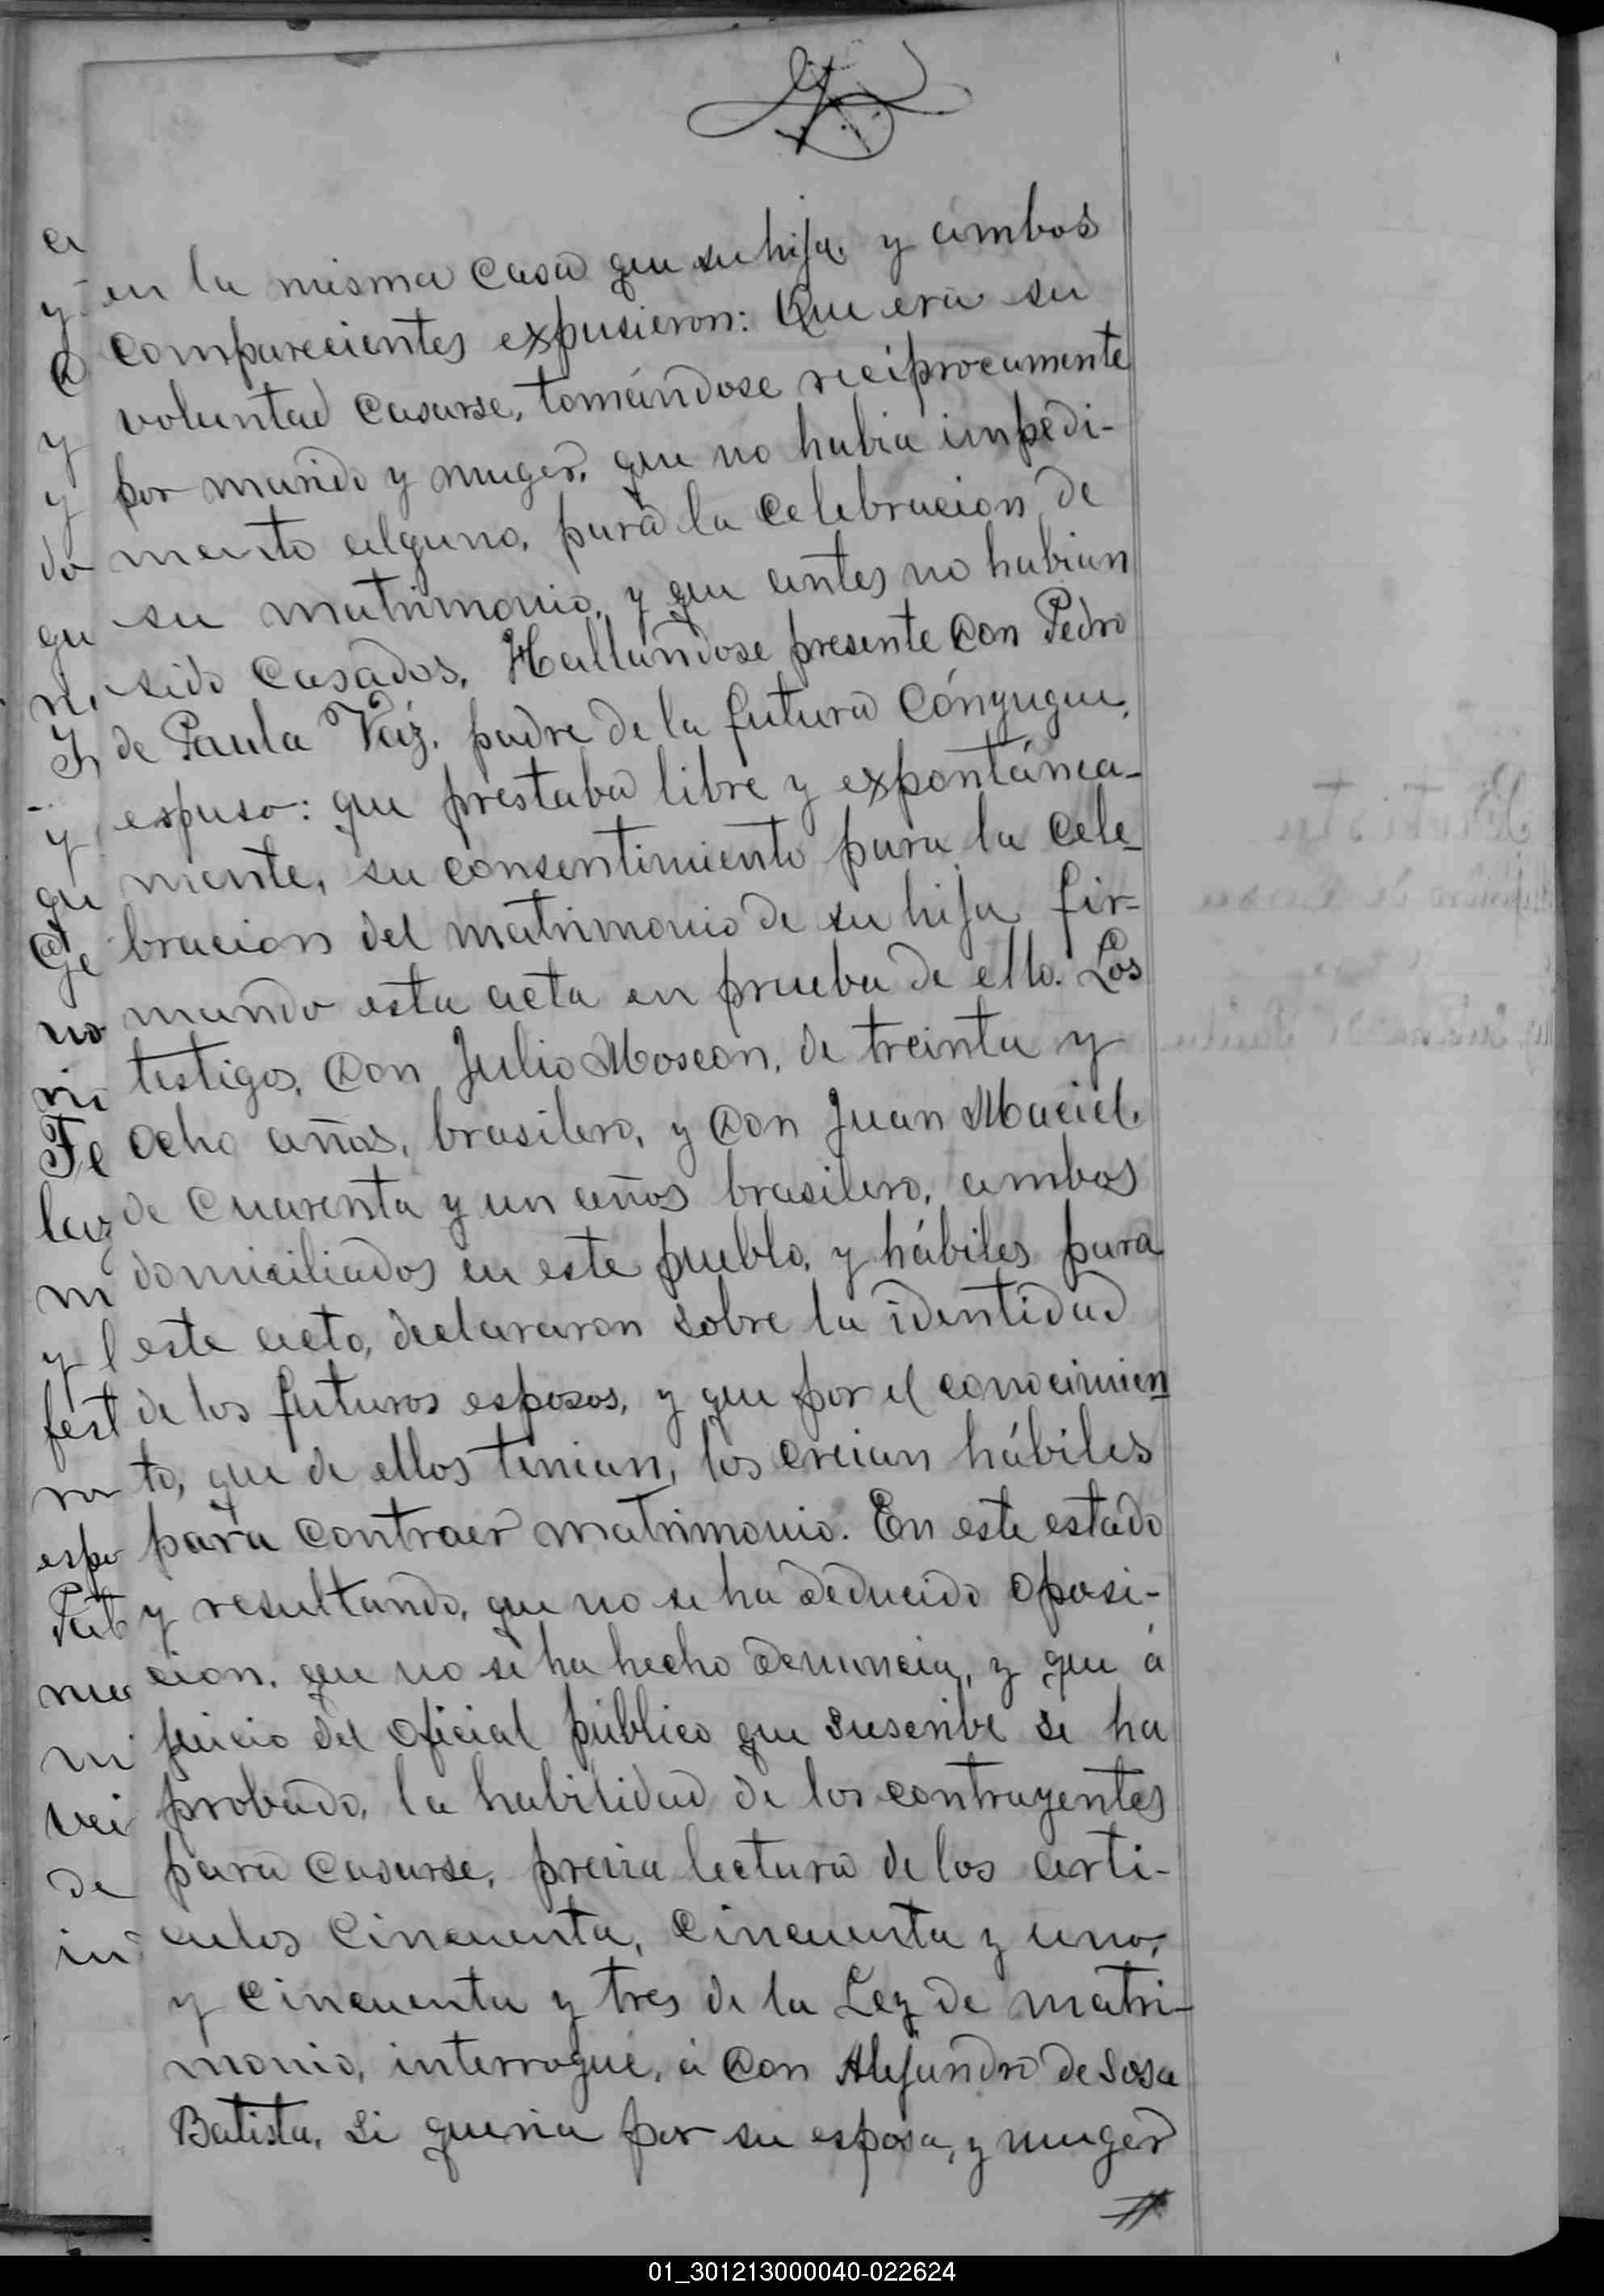 en la misma casa que su hija, y ambos
comparecientes expusieron: Que era su
voluntad casarse, tomándose reciprocamente
por marido y muger, que no habia impedi-
mento alguno, para la celebracion de
su matrimonio, y que antes no habian
sido casados. Hallandose presente Don Pedro
de Paula Vaz, padre de la futura cónyugue,
espuso: que prestaba libre y expontánea-
mente, su consentimiento para la cele-
bracion del matrimonio de su hija fir-
mando esta acta en prueba de ello. Los
testigos, Don Julio Moscon, de treinta y
ocho años, brasilero, y Don Juan Maciel,
de cuarenta y un años brasilero, ambos
domiciliados en este pueblo, y hábiles para
este acto, declararon sobre la identidad
de los futuros esposos, y que por el conocimien
to, que de ellos tenian, los creian hábiles
para contraer matrimonio. En este estado
y resultando, que no se ha deducido oposi-
cion, que no se ha hecho denuncia, y que á
juicio del oficial público que suscribe se ha
probado, la habilidad de los contrayentes
para casarse, previa lectura de los arti-
culos cincuenta, cincuenta y uno,
y cincuenta y tres de la Ley de matri-
monio, interrogué, á Don Alejandro de Sosa
Batista, si queria por su esposa, y muger
01_301213000040-022624